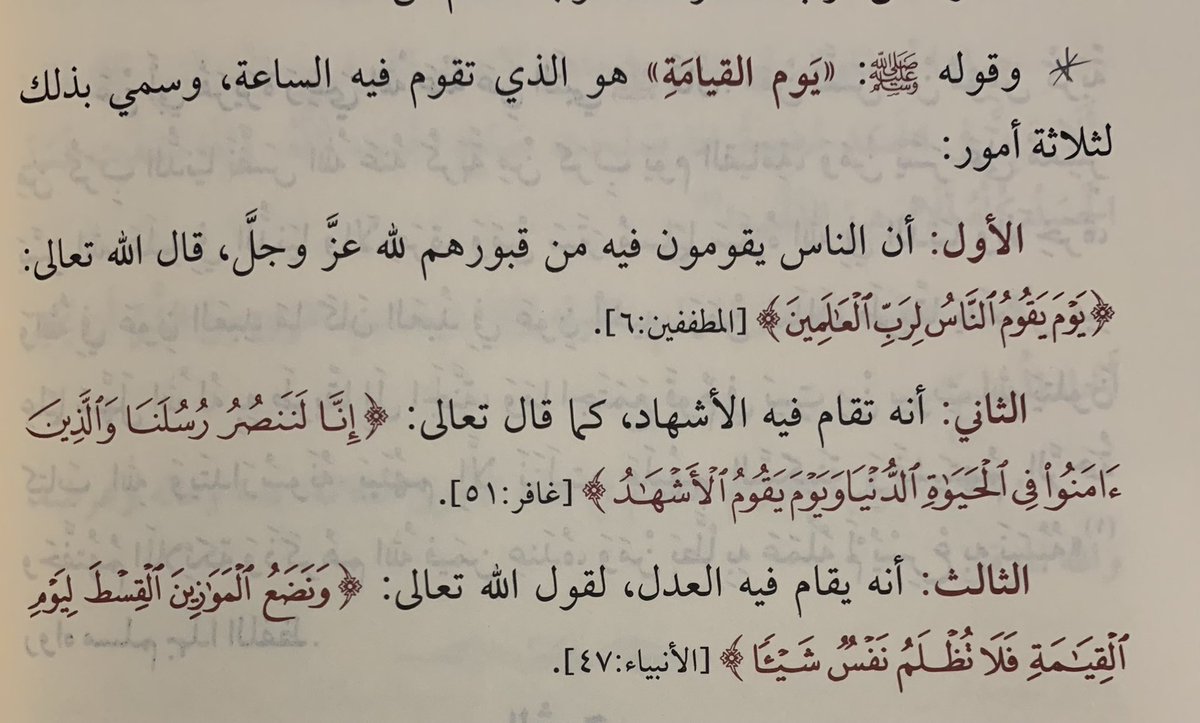 * وقوله ﷺ: «يَوم القيامَةِ» هو الذي تقوم فيه الساعة، وسمي بذلك
لثلاثة أمور:
الأول: أن الناس يقومون فيه من قبورهم لله عزَّ وجلَّ، قال الله تعالى:
﴿يَوْمَ يَقُومُ ٱلنَّاسُ لِرَبِّ ٱلْعَٰلَمِينَ﴾ [المطففين:٦].
الثاني: أنه تقام فيه الأشهاد، كما قال تعالى: ﴿إِنَّا لَنَنصُرُ رُسُلَنَا وَٱلَّذِينَ
ءَامَنُوا۟ فِى ٱلْحَيَوٰةِ ٱلدُّنْيَا وَيَوْمَ يَقُومُ ٱلْأَشْهَٰدُ﴾ [غافر:٥١].
الثالث: أنه يقام فيه العدل، لقول الله تعالى: ﴿وَنَضَعُ ٱلْمَوَٰزِينَ ٱلْقِسْطَ لِيَوْمِ
ٱلْقِيَٰمَةِ فَلَا تُظْلَمُ نَفْسٌ شَيْـًٔا﴾ [الأنبياء:٤٧].